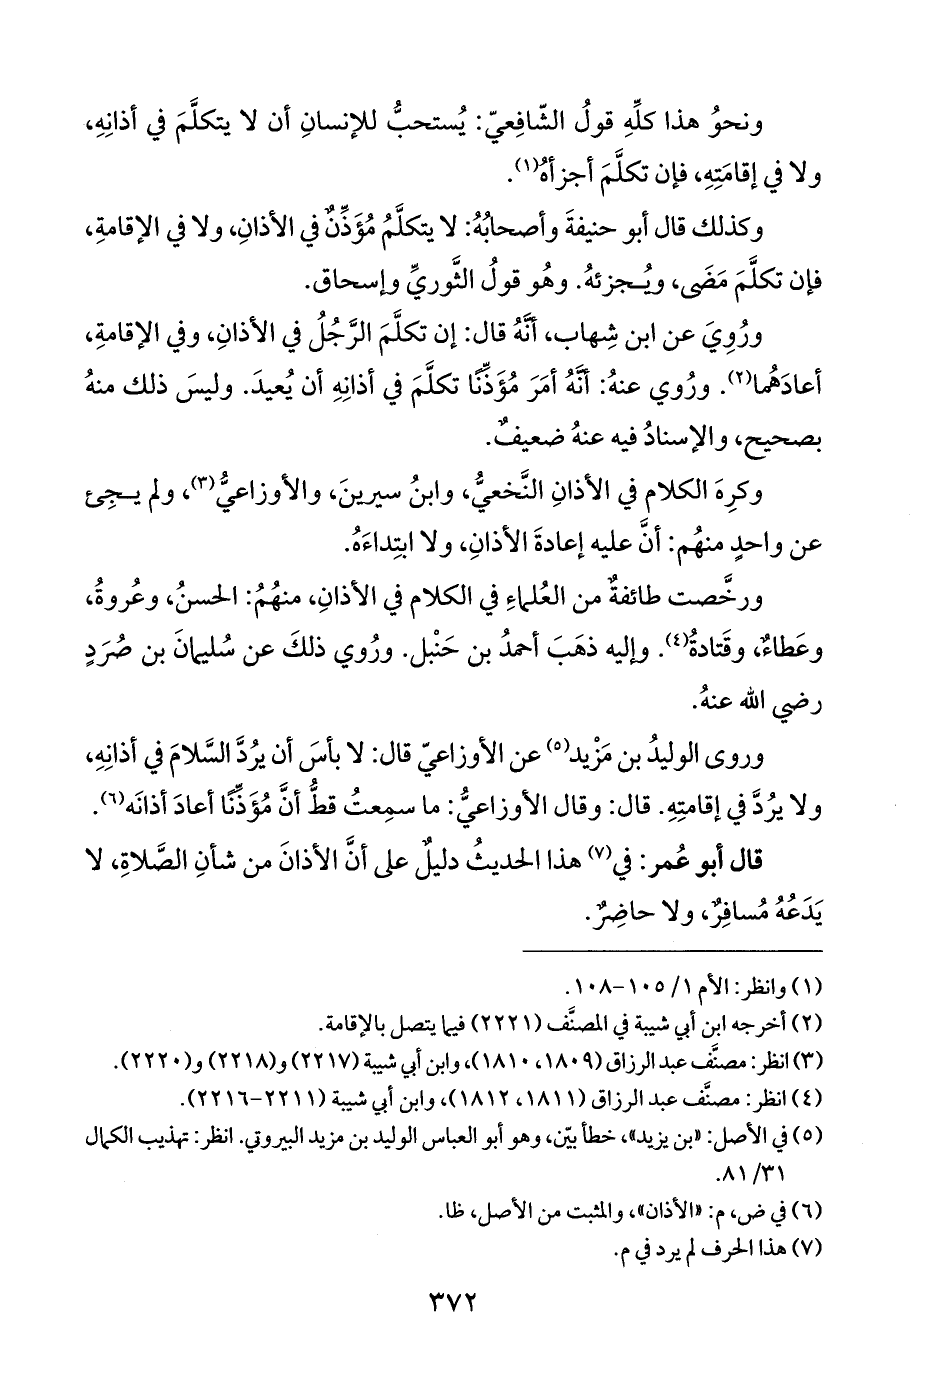 ونحوُ هذا كلِّهِ قولُ الشّافِعيّ: يُستحبُّ للإنسانِ أن لا يتكلَّمَ في أذانِهِ،
ولا في إقامَتِهِ، فإن تكلَّمَ أجزأهُ(١).
وكذلك قال أبو حنيفةَ وأصحابُهُ: لا يتكلَّمُ مُؤَذِّنٌ في الأذانِ، ولا في الإقامةِ،
فإن تكلَّمَ مَضَى، ويُـجزئهُ. وهُو قولُ الثَّوريِّ وإسحاق.
ورُوِيَ عن ابن شِهاب، أنَّهُ قال: إن تكلَّمَ الرَّجُلُ في الأذانِ، وفي الإقامةِ،
أعادَهُما(٢). ورُوي عنهُ: أنَّهُ أمَرَ مُؤَذِّنًا تكلَّمَ في أذانِهِ أن يُعيدَ. وليسَ ذلك منهُ
بصحيح، والإسنادُ فيه عنهُ ضعيفٌ.
وكرِهَ الكلام في الأذانِ النَّخعيُّ، وابنُ سيرينَ، والأوزاعيُّ(٣)، ولم يـجِئ
عن واحدٍ منهُم: أنَّ عليه إعادةَ الأذانِ، ولا ابتِداءَهُ.
ورخَّصت طائفةٌ من العُلماءِ في الكلام في الأذانِ، منهُمُ: الحسنُ، وعُروةُ،
وعَطاءٌ، وقَتادةُ(٤). وإليه ذهَبَ أحمدُ بن حَنْبل. ورُوي ذلكَ عن سُليمانَ بن صُرَدٍ
رضي الله عنهُ.
وروى الوليدُ بن مَزْيد(٥) عن الأوزاعيّ قال: لا بأسَ أن يرُدَّ السَّلامَ في أذانِهِ،
ولا يرُدَّ في إقامتِهِ. قال: وقال الأوزاعيُّ: ما سمِعتُ قطُّ أنَّ مُؤَذِّنًا أعادَ أذانَه(٦).
قال أبو عُمر: في(٧) هذا الحديثُ دليلٌ على أنَّ الأذانَ من شأنِ الصَّلاةِ، لا
يَدَعُهُ مُسافِرٌ، ولا حاضِرٌ.
(١) وانظر: الأم ١/ ١٠٥-١٠٨.
(٢) أخرجه ابن أبي شيبة في المصنَّف (٢٢٢١) فيما يتصل بالإقامة.
(٣) انظر: مصنَّف عبد الرزاق (١٨٠٩، ١٨١٠)، وابن أبي شيبة (٢٢١٧) و(٢٢١٨) و(٢٢٢٠).
(٤) انظر: مصنَّف عبد الرزاق (١٨١١، ١٨١٢)، وابن أبي شيبة (٢٢١١-٢٢١٦).
(٥) في الأصل: «بن يزيد»، خطأ بيّن، وهو أبو العباس الوليد بن مزيد البيروتي. انظر: تهذيب الكمال
٣١/ ٨١.
(٦) في ض، م: «الأذان»، والمثبت من الأصل، ظا.
(٧) هذا الحرف لم يرد في م.
٣٧٢